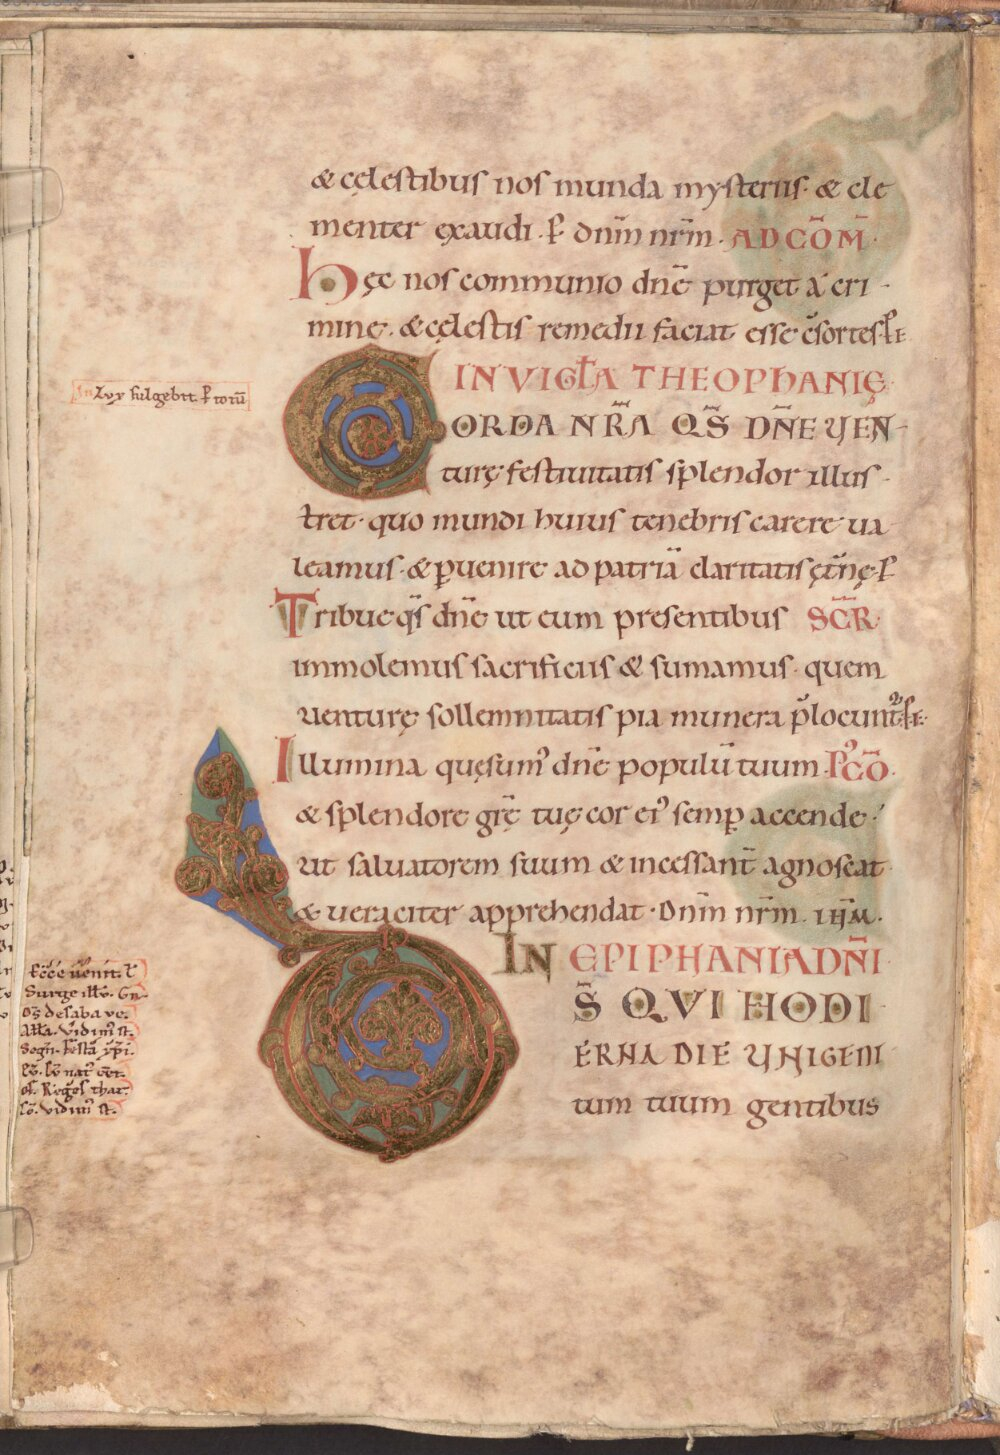 & cęlestibus nos munda mysteriis· & cle
menter exaudi· P̶ dñm nr̄m· AD CŌM̄·
Hęc nos communio dnē purget a cri-
mine· & cęlestis remedii faciat esse c̄sortes· P̶
IN VIGL̄A THEOPHANIĘ
CORDA NR̄A QS̄ DÑE VEN-
turę festiuitatis splendor illus-
tret· quo mundi huius tenebris carere ua
leamus· & p̱uenire ad patriā claritatis ęt̄nę· P̶
Tribue qs̄ dnē ut eum presentibus SC̄R
immolemus sacrificiis & sumamus· quem
uenturę sollemnitatis pia munera p̄locunt᷑·
Illumina quęsum᾽ dnē populū tuum P᾽CŌ·
& splendore grē tuę cor ei᾽ semp̱ accende·
ut saluatorem suum & incessant̄ agnoscat
& ueraciter apprehendat· Dnīm nr̄m· IHM̄·
IN EPIPHANIA DÑI
DS̄ QVI HODI
ERNA DIE VNIGENI
tum tuum gentibus
In Lux fulgebit P̶ totū
Ecce uenit·
Surge illū·
Om̄s de saba ue·
Alla· Vidim᾽ st·